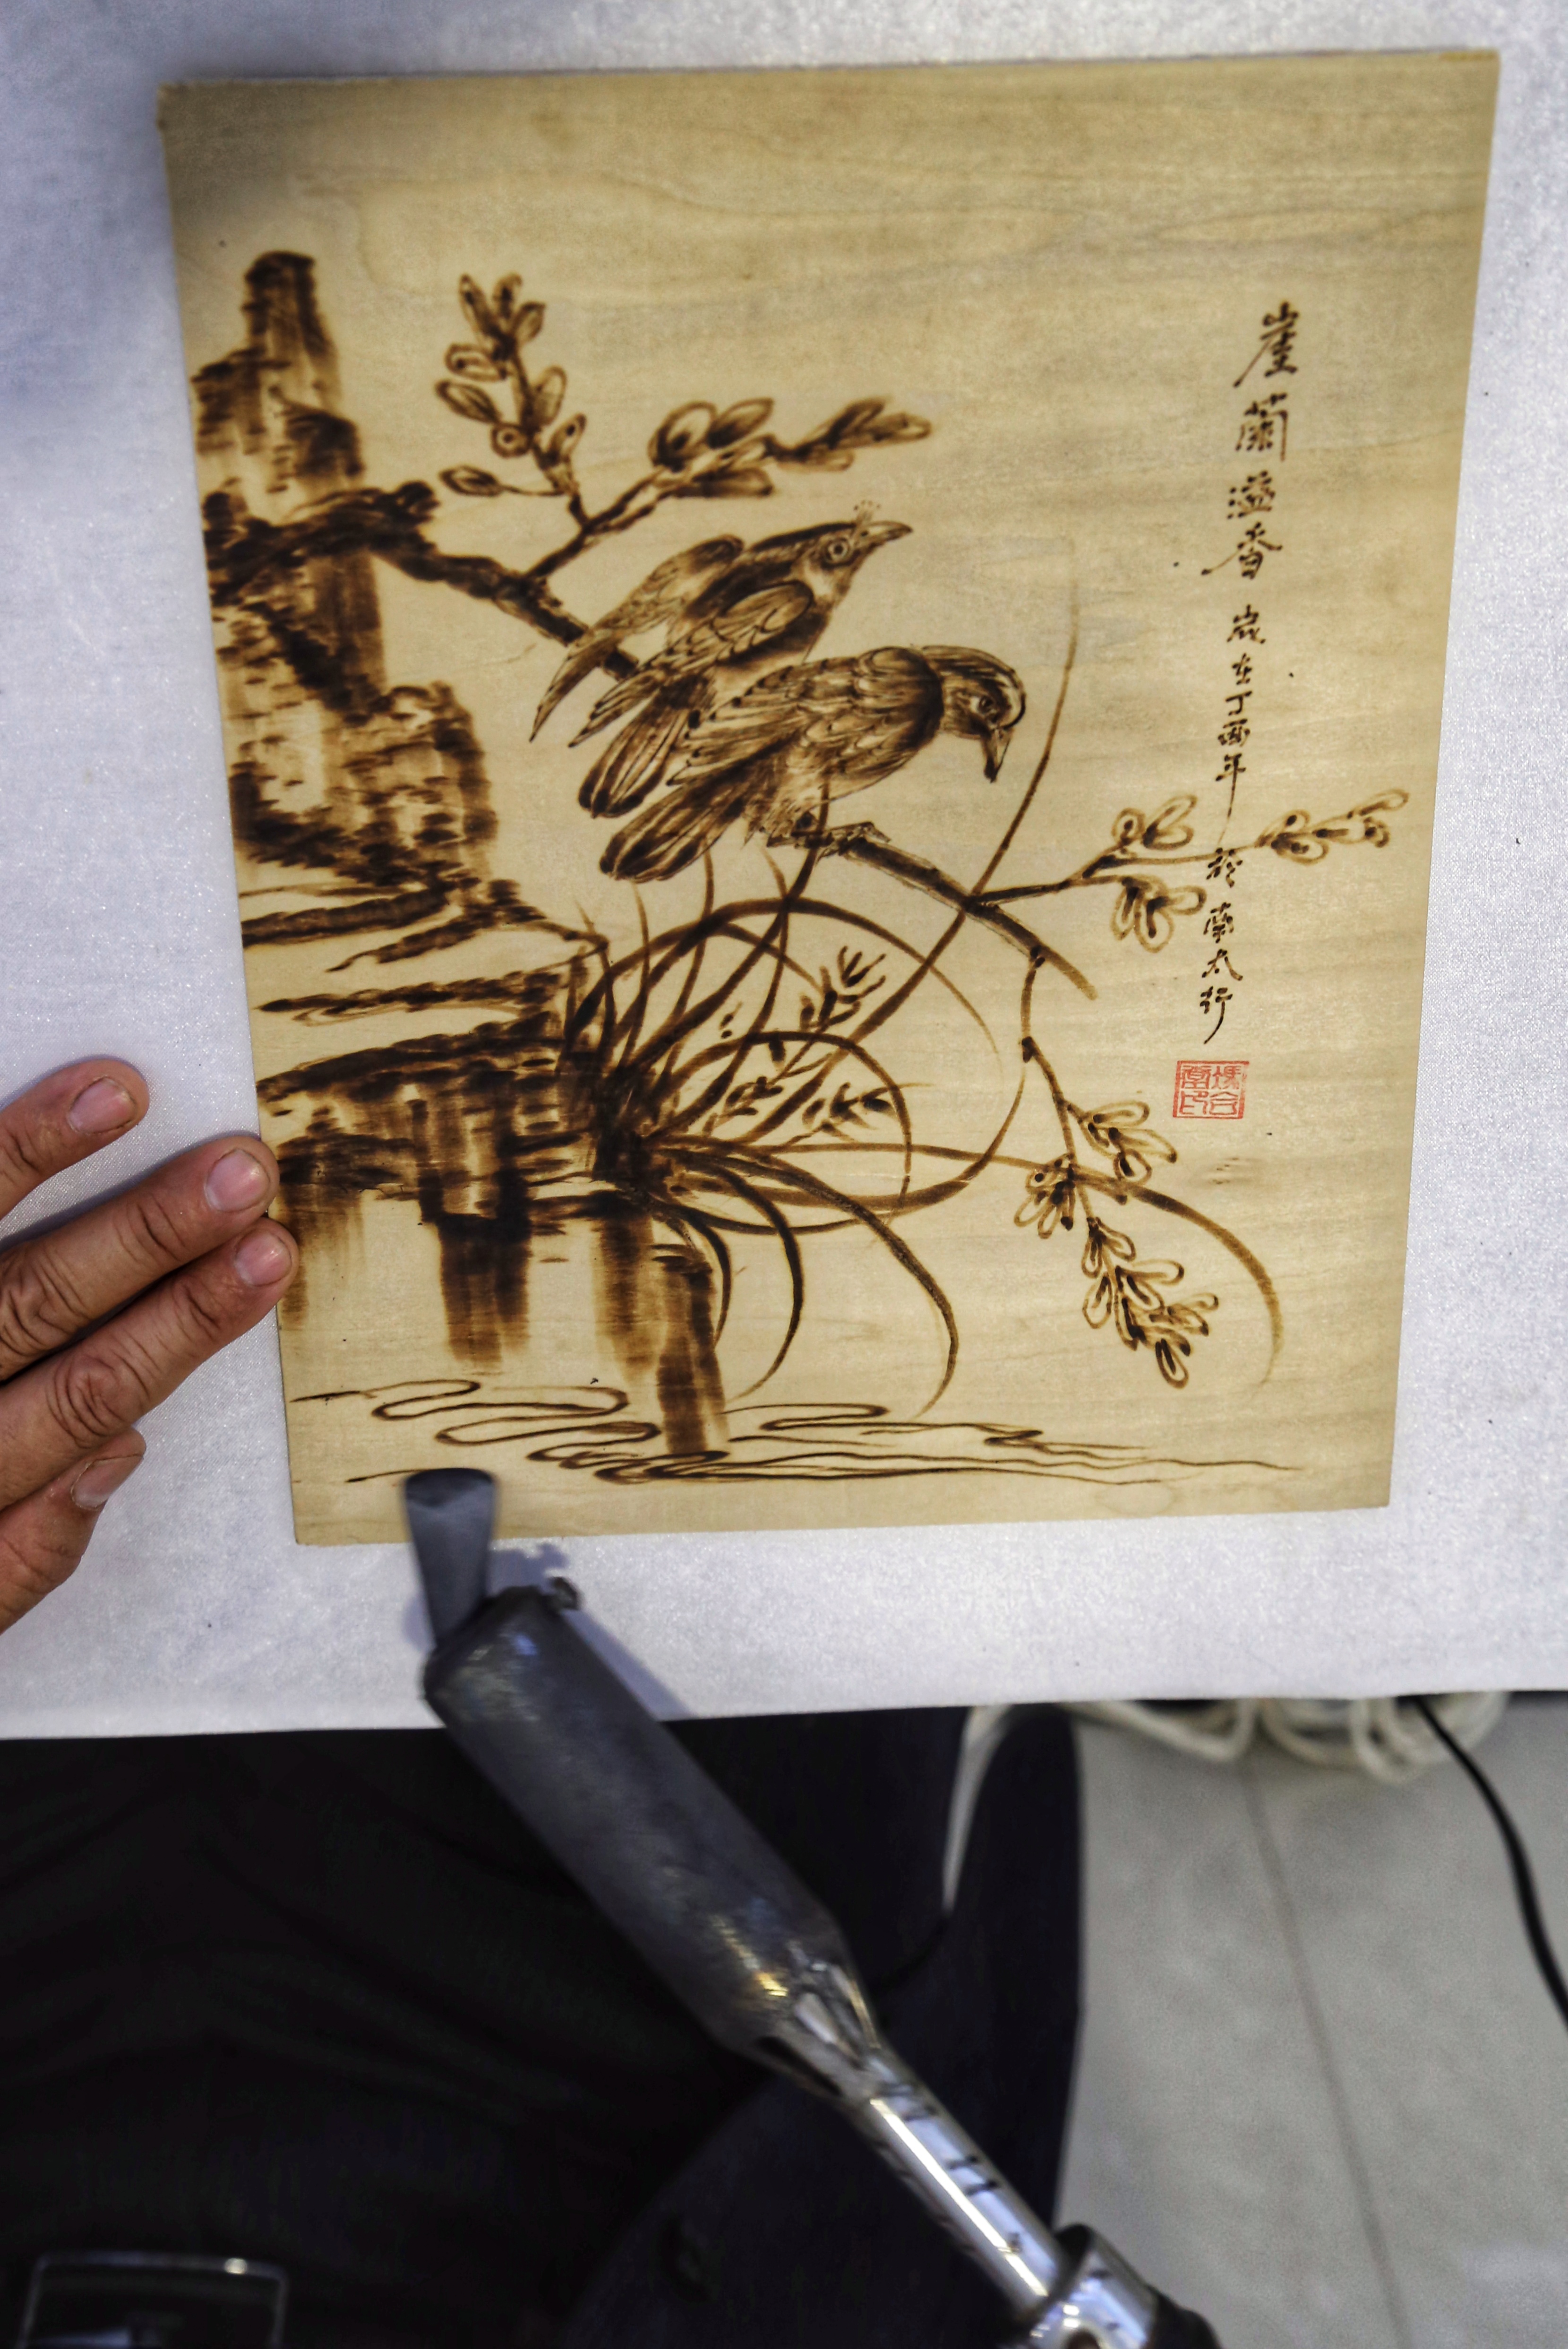 崖蘭溢香 歲在丁酉年於蘭太行